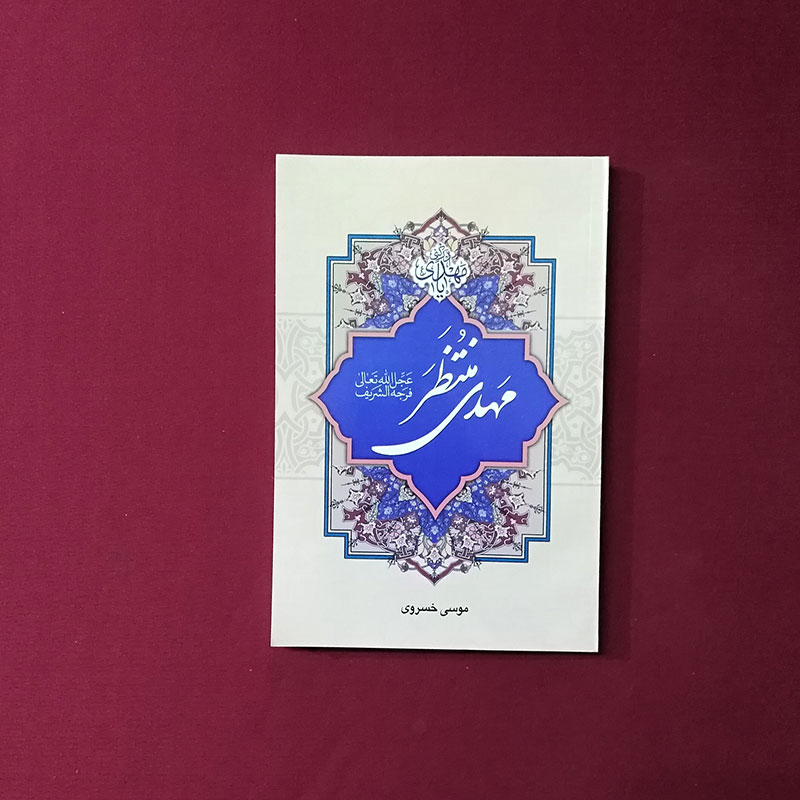 مهدی
مَهدی مُنتظَر
عَجَّلَ اللهُ تَعٰالیٰ
فَرَجَهُ الشَّریف
موسی خسروی